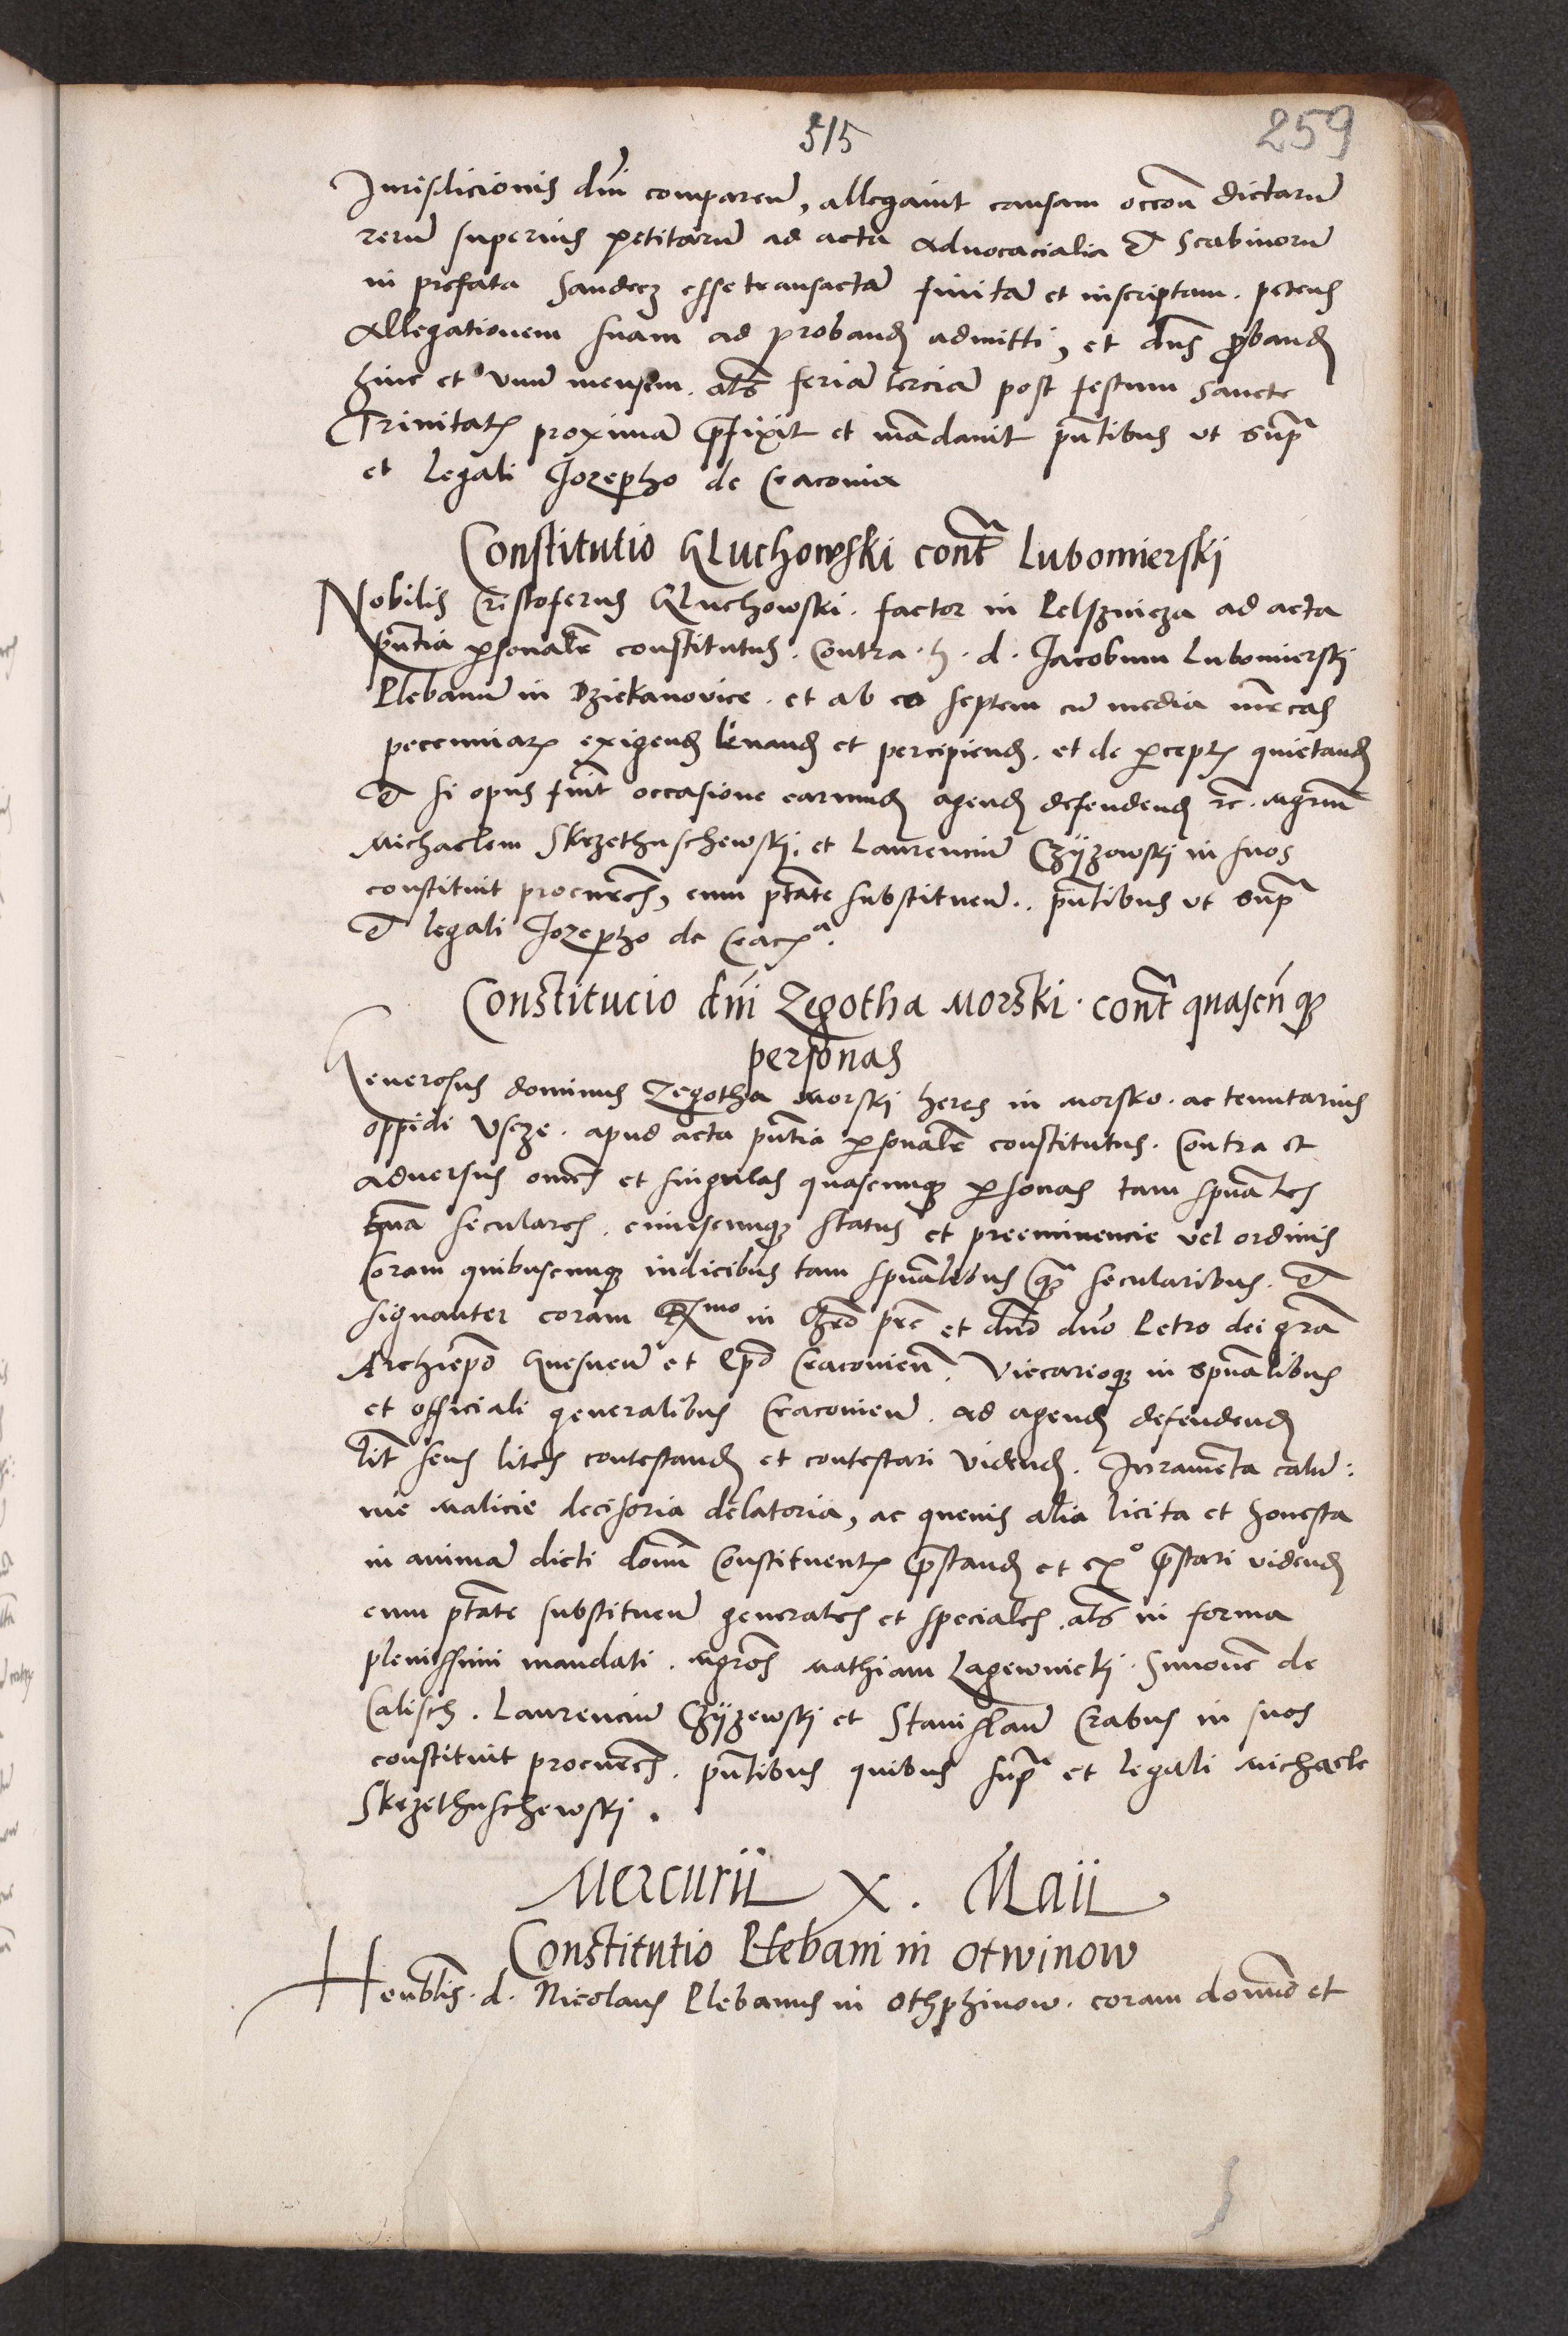 515
259
Jurisdicionis dni comparen, allegavit causam occoñ dictarũ
rerũ superius petitarũ ad acta Advocacialia et Scabinorũ
in prefata Sandecz esse transactã finitã et inscriptam. petens
Allegationem suam ad proband admitti, et dns proband
hinc et unũ mensem. als feriã terciã post festum Sancte
Trinitat proximã prefixit et mãdavit pñtibus ut supra
et legali Jozepho de Cracovia
Constitutio Gluchowski contra Lubomierski
Nobilis Cristoferus Gluchowski. factor in Pelsznicza ad acta
pñtia personalr constitutus. Contra. h. d. Jacobum Lubomierskj
Plebanũ in Dziekanovice. et ab eo septem cũ media mrcas
pecuniar exigend levand et percipiend. et de percept quietand
et si opus fuit occasione earund agend defendend rc. Mgrum
Michaelem Skrzethuschewskj. et Laurenciũ Czyzowskj in suos
constituit procures, cum ptate substituen. pñtibus ut supra
et legali Jozepho de Crac a.
Constitucio dñi Zegotha Morski. contra quascũque
personas
Generosus dominus Zegotha Morskj heres in Morsko. ac tenutarius
oppidi Uscze. apud acta pñtia personalr constitutus. Contra et
adversus omes et singulas quascunque personas tam spũales
quã seculares. cuiuscunque status et preeminencie vel ordinis
Coram quibuscunque iudicibus tam spũalibus quã secularibus. et
signanter coram Rmo in Chro pre et dño dño Petro dei gra
Archiepo Gnesnen et Epo Cracovien. Viccarioque in spũalibus
et officiali generalibus Cracovien. ad agend defendend
lit seus lites contestand et contestari vidend. Juramenta calũ:
nie malicie decisoria delatoria, ac quevis alia licita et honesta
in animã dicti domi Constituent prestand et ex o prestari vidend
cum ptate substituen generales et speciales. als in forma
plenissimi mandati. Mgros Mathiam Lagewnickj. Simonẽ de
Calisch. Laurenciũ Czyzewskj et Stanislaũ Crabus in suos
constituit procures. pñtibus quibus supra et legali Michaele
Skrzethuschewskj.
Mercurii X. Maii
Constitutio Plebani in Otwinow
Honblis. d. Nicolaus Plebanus in Othphinow. coram domino et